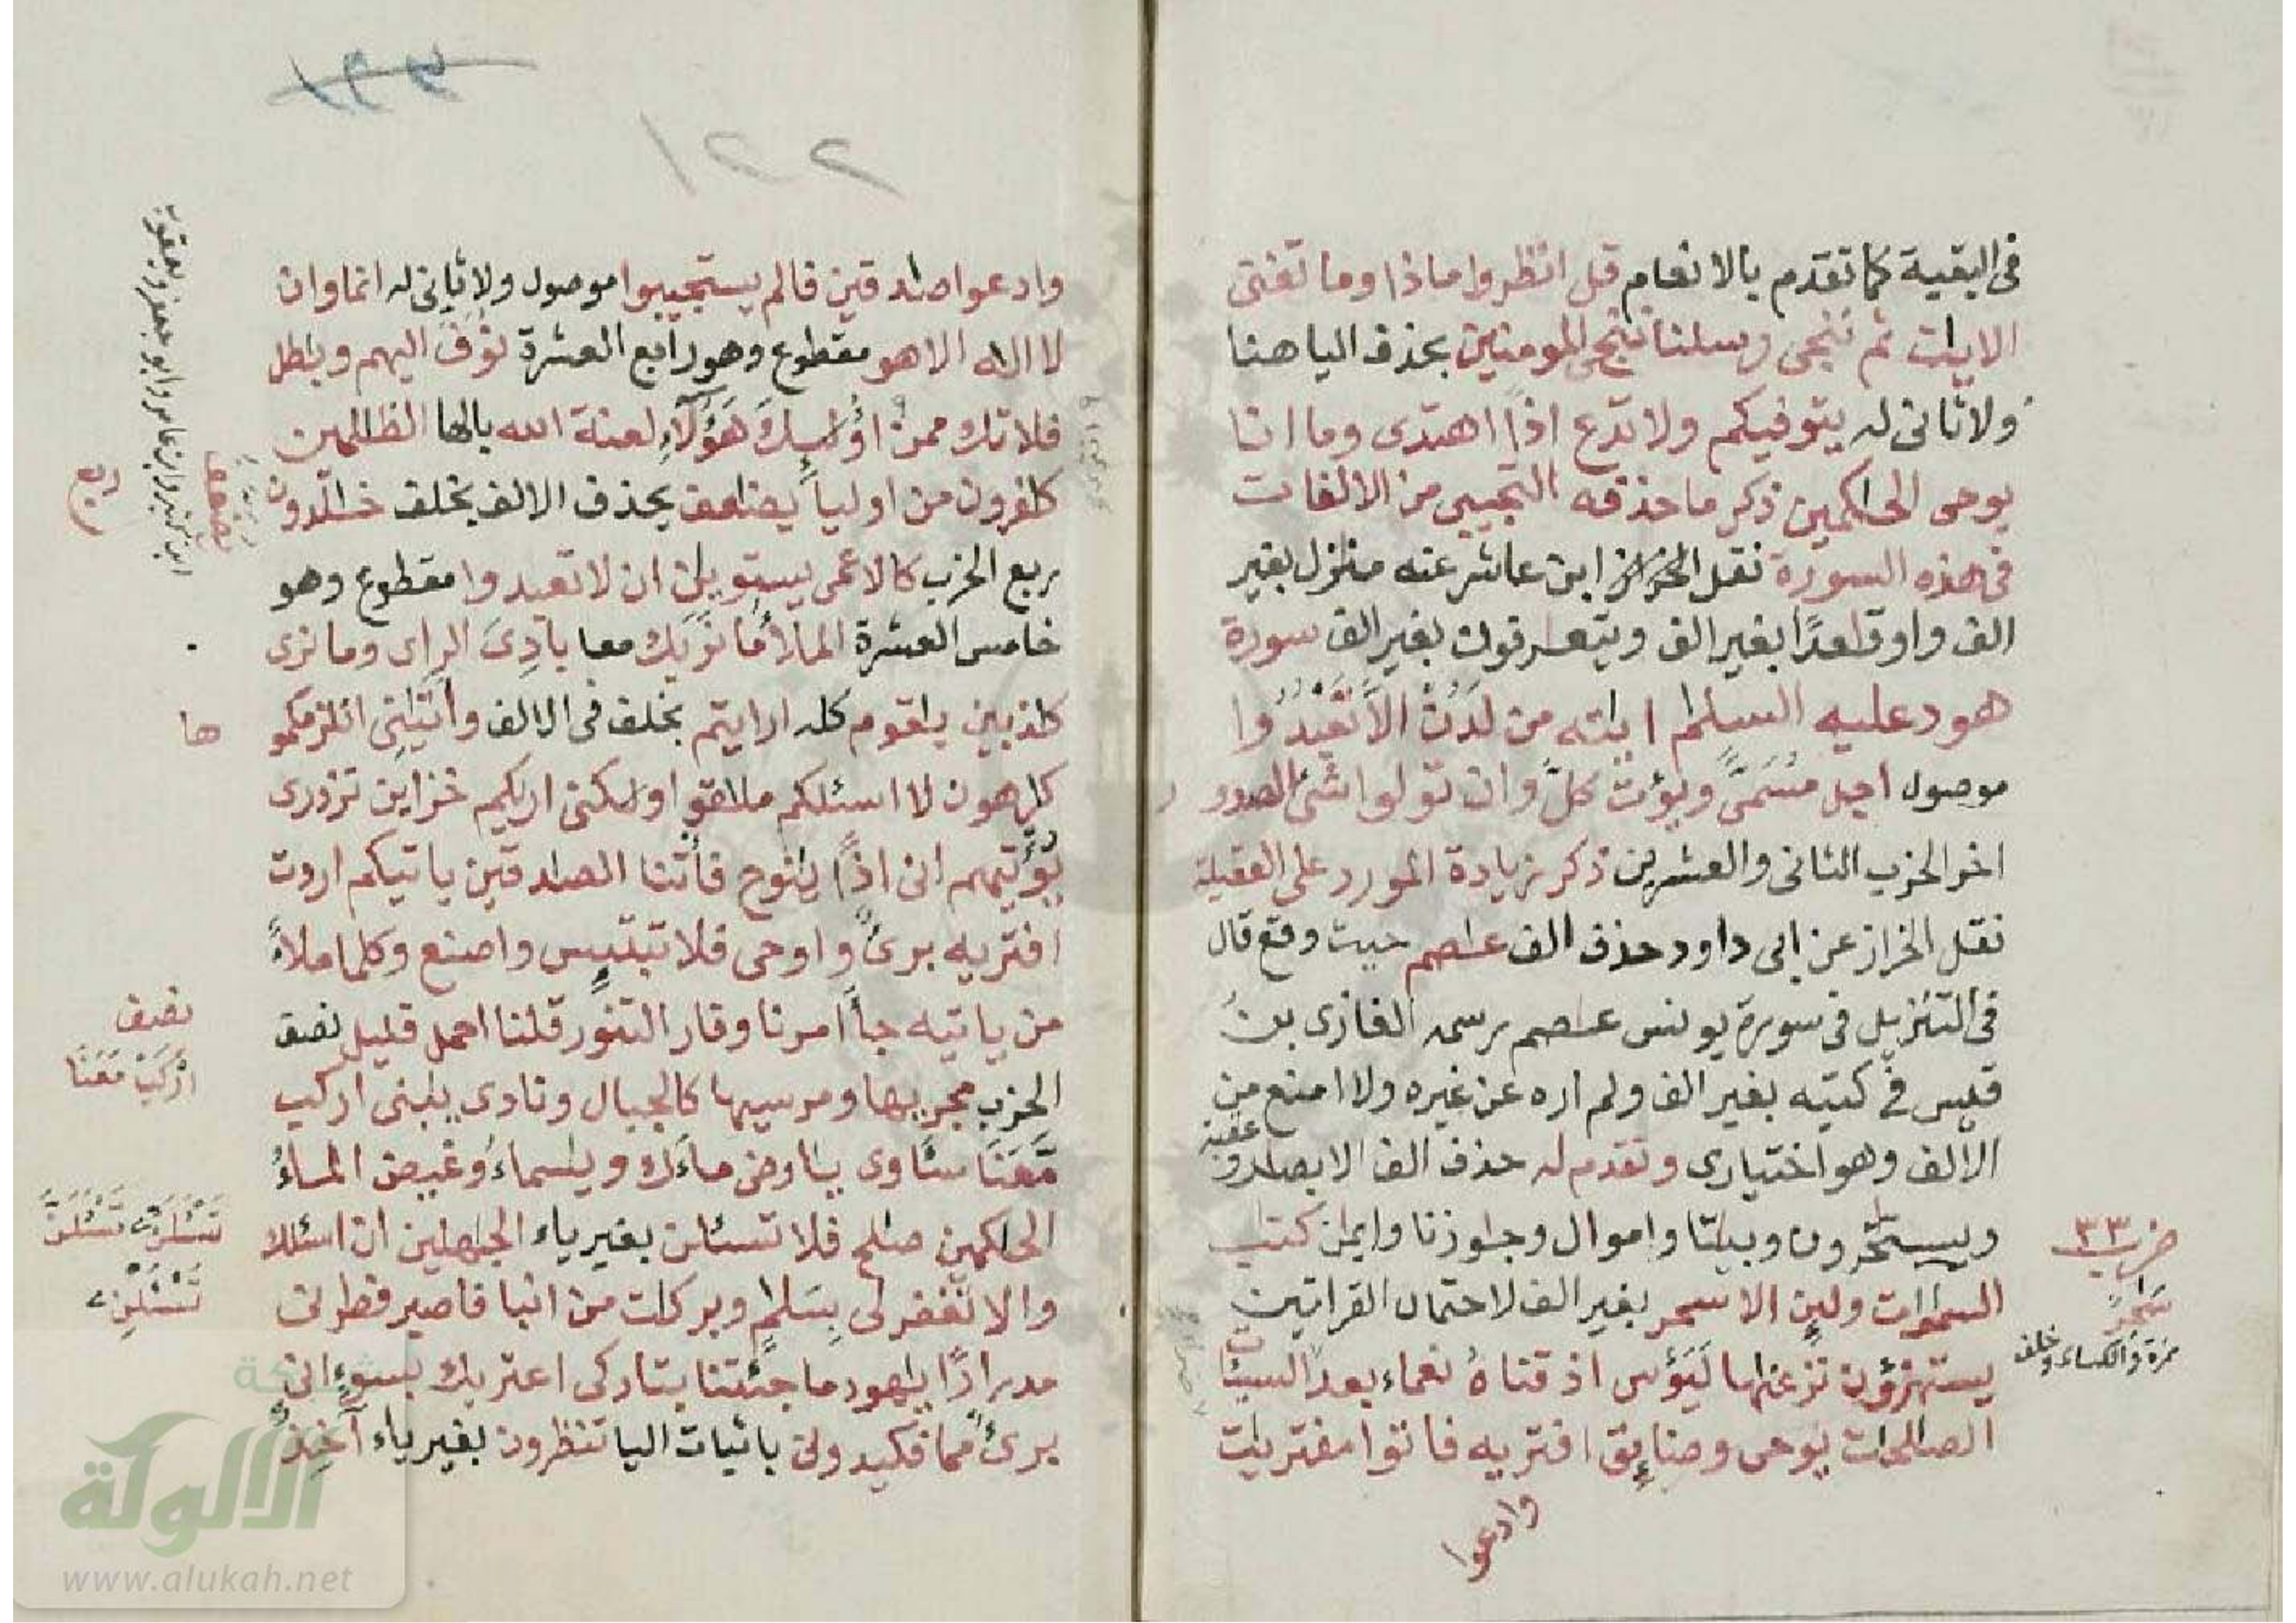 فى البقية كما تقدم بالانعام قل انظروا ماذا وما تغنى
الايت ثم ننجى رسلنا ننج المومنين بحذف اليا هنا
ولا ثانى له يتوفيكم ولا تدع اذا اهتدى وما انا
يوحى الحاكمين ذكر ما حذفه التجيبى من الالفات
فى هذه السورة نقل الخراز ابن عاشر عنه منزل بغير
الف واو قعدا بغير الف ويتعرفون بغير الف سورة
هود عليه السلم ايته من لدن الا تعبدوا
موصول اجل مسمى ويؤت كل وان تولوا شئ الصدور
اخر الحزب الثانى والعشرين ذكر زيادة المورد على العقيلة
نقل الخراز عن ابى داود حذف الف عصم حيث وقع قال
فى التنزيل فى سورة يونس عصم رسمه الغازى بن
قيس فى كتبه بغير الف ولم اره عن غيره ولا امنع من
الالف وهو اختيارى وتقدم له حذف الف الابصر و
عقبة
ويستخرون وبيتا واموال وجوزنا وايمن كتب
السموت ولين الا سحر بغير الف لاحتمال القراتين
يستهزؤن نزعنها ليؤس اذقناه نعماء بعد السيئات
الصلحت يوحى وضائق افتريه فاتوا مفتريت
وادعوا
حزب ٢٣
سحر
حمزة والكساء وخلف
٢٢١
وادعوا صدقين فالم يستجيبوا موصول ولا ثانى له انما وان
لا اله الا هو مقطوع وهو رابع العشرة نوف اليهم وبطل
فلا تك ممن اوليك هؤلاء لعنة الله بالها الظلمين
كفرون من اوليا يضعف بحذف الالف بخلف خلدون
ربع الحزب كالاعمى يستوين ان لا تعبدوا مقطوع وهو
خامس العشرة الملا ما نريك معا بادى الراى وما نرى
كذبين يقوم كله ارايتم بخلف فى الالف واتينى انلزمكمو
كرهون لا اسئلكم ملقوا ولكنى اريكم خزاين تزدرى
يؤتيهم انى اذا ينوح فاتنا الصدقين ياتيكم اردت
افتريه برئ واوحى فلا تبتيس واصنع وكلما ملا
من ياتيه جا امرنا وفار التنور قلنا احمل قليل نصف
الحزب مجريها ومرسيها كالجبال ونادى يبنى اركب
معنا ساوى يارض ماءك ويسماء وغيض الماء
الحكمين صلح فلا تسئلن بغير ياء الجهلين ان اسئلك
والا تغفر لى بسلم وبركت من انبا فاصبر فطرنى
مدرارا يهود ما جئتنا بتاركى اعتريك بسوء انى
برئ مما فكيدونى باثبات اليا تنظرون بغير ياء آخذ
يضعف
ابن كثير وابن عامر وابو جعفر ويعقوب
ربع
ها
نصف
اركب معنا
تسئلن تسئلن
تسئلن
شبكة
الألوكة
www.alukah.net